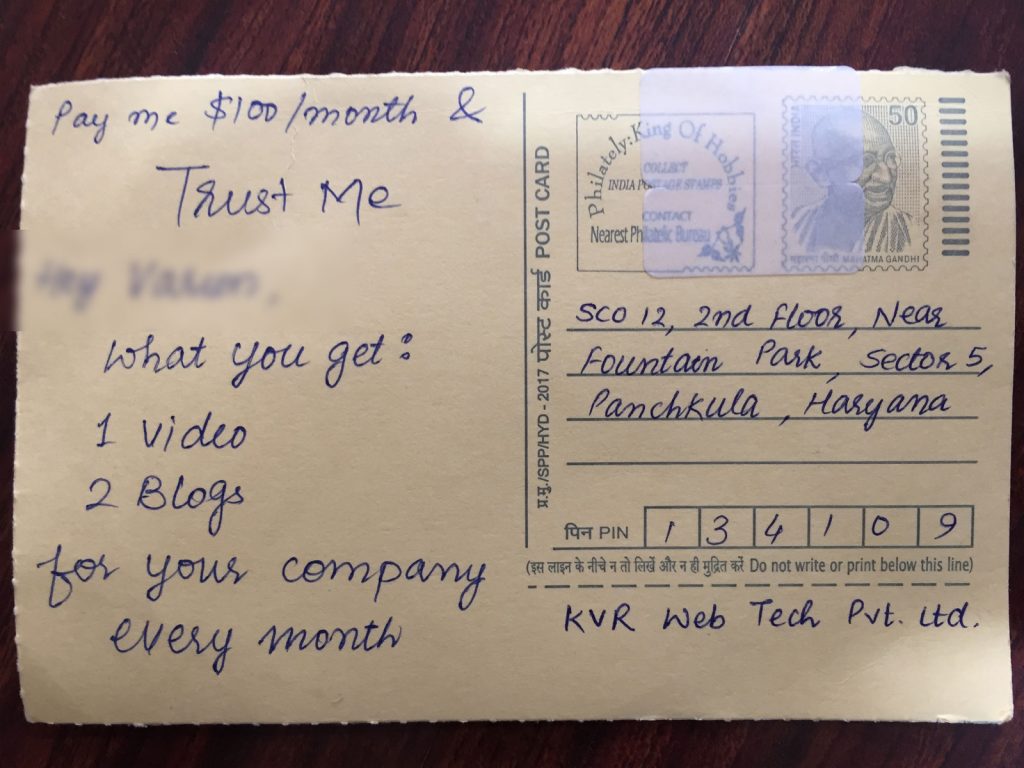 Pay me $100/month &
Trust Me
What you get:
1 Video
2 Blogs
for your company
every month
प्र.मु./SPP/HYD - 2017 पोस्ट कार्ड POST CARD
Philately: King Of Hobbies
COLLECT
INDIA POSTAGE STAMPS
CONTACT
Nearest Philatelic Bureau
50
भारत INDIA
महात्मा गाँधी MAHATMA GANDHI
SCO 12, 2nd Floor, Near
Fountain Park, Sector 5,
Panchkula, Haryana
पिन PIN 1 3 4 1 0 9
(इस लाइन के नीचे न तो लिखें और न ही मुद्रित करें Do not write or print below this line)
KVR Web Tech Pvt. Ltd.